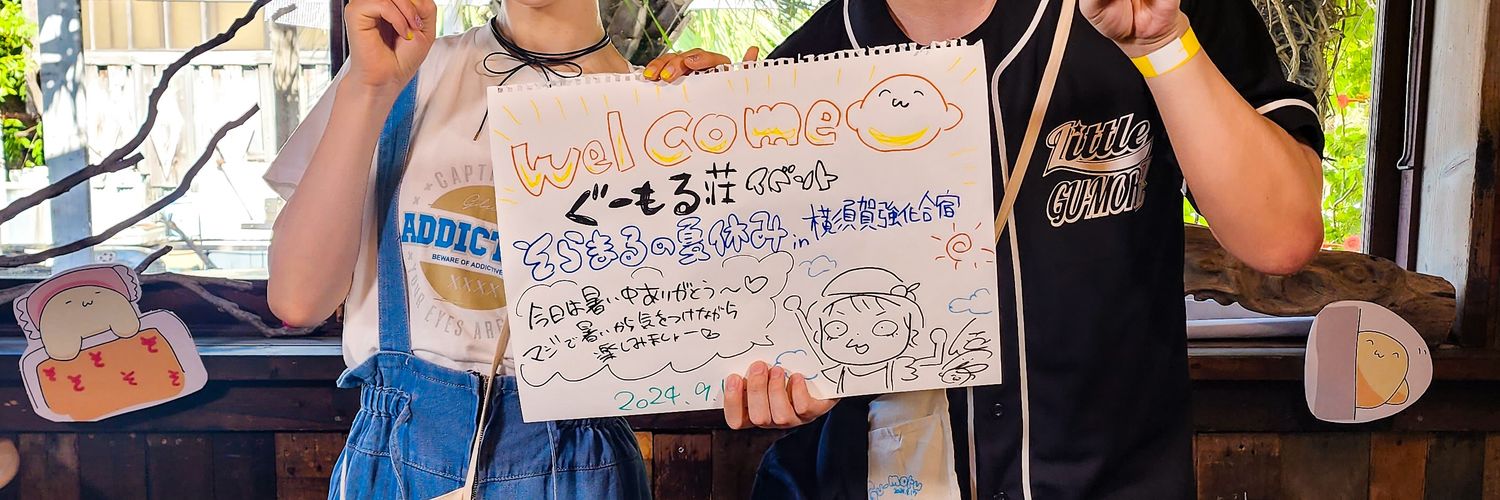 welcome
ぐーもる荘 イベント
そらまるの夏休み in 横須賀強化合宿
今日は暑い中ありがとう〜♡
マジで暑いから気をつけながら
楽しみましょー
2024.9.
CAPTA
ADDICT
BEWARE OF ADDICTIVE
XXXX
YOUR EYES ARE
Little
GU-MOR
Gu-moru
そ そ そ そ そ そ